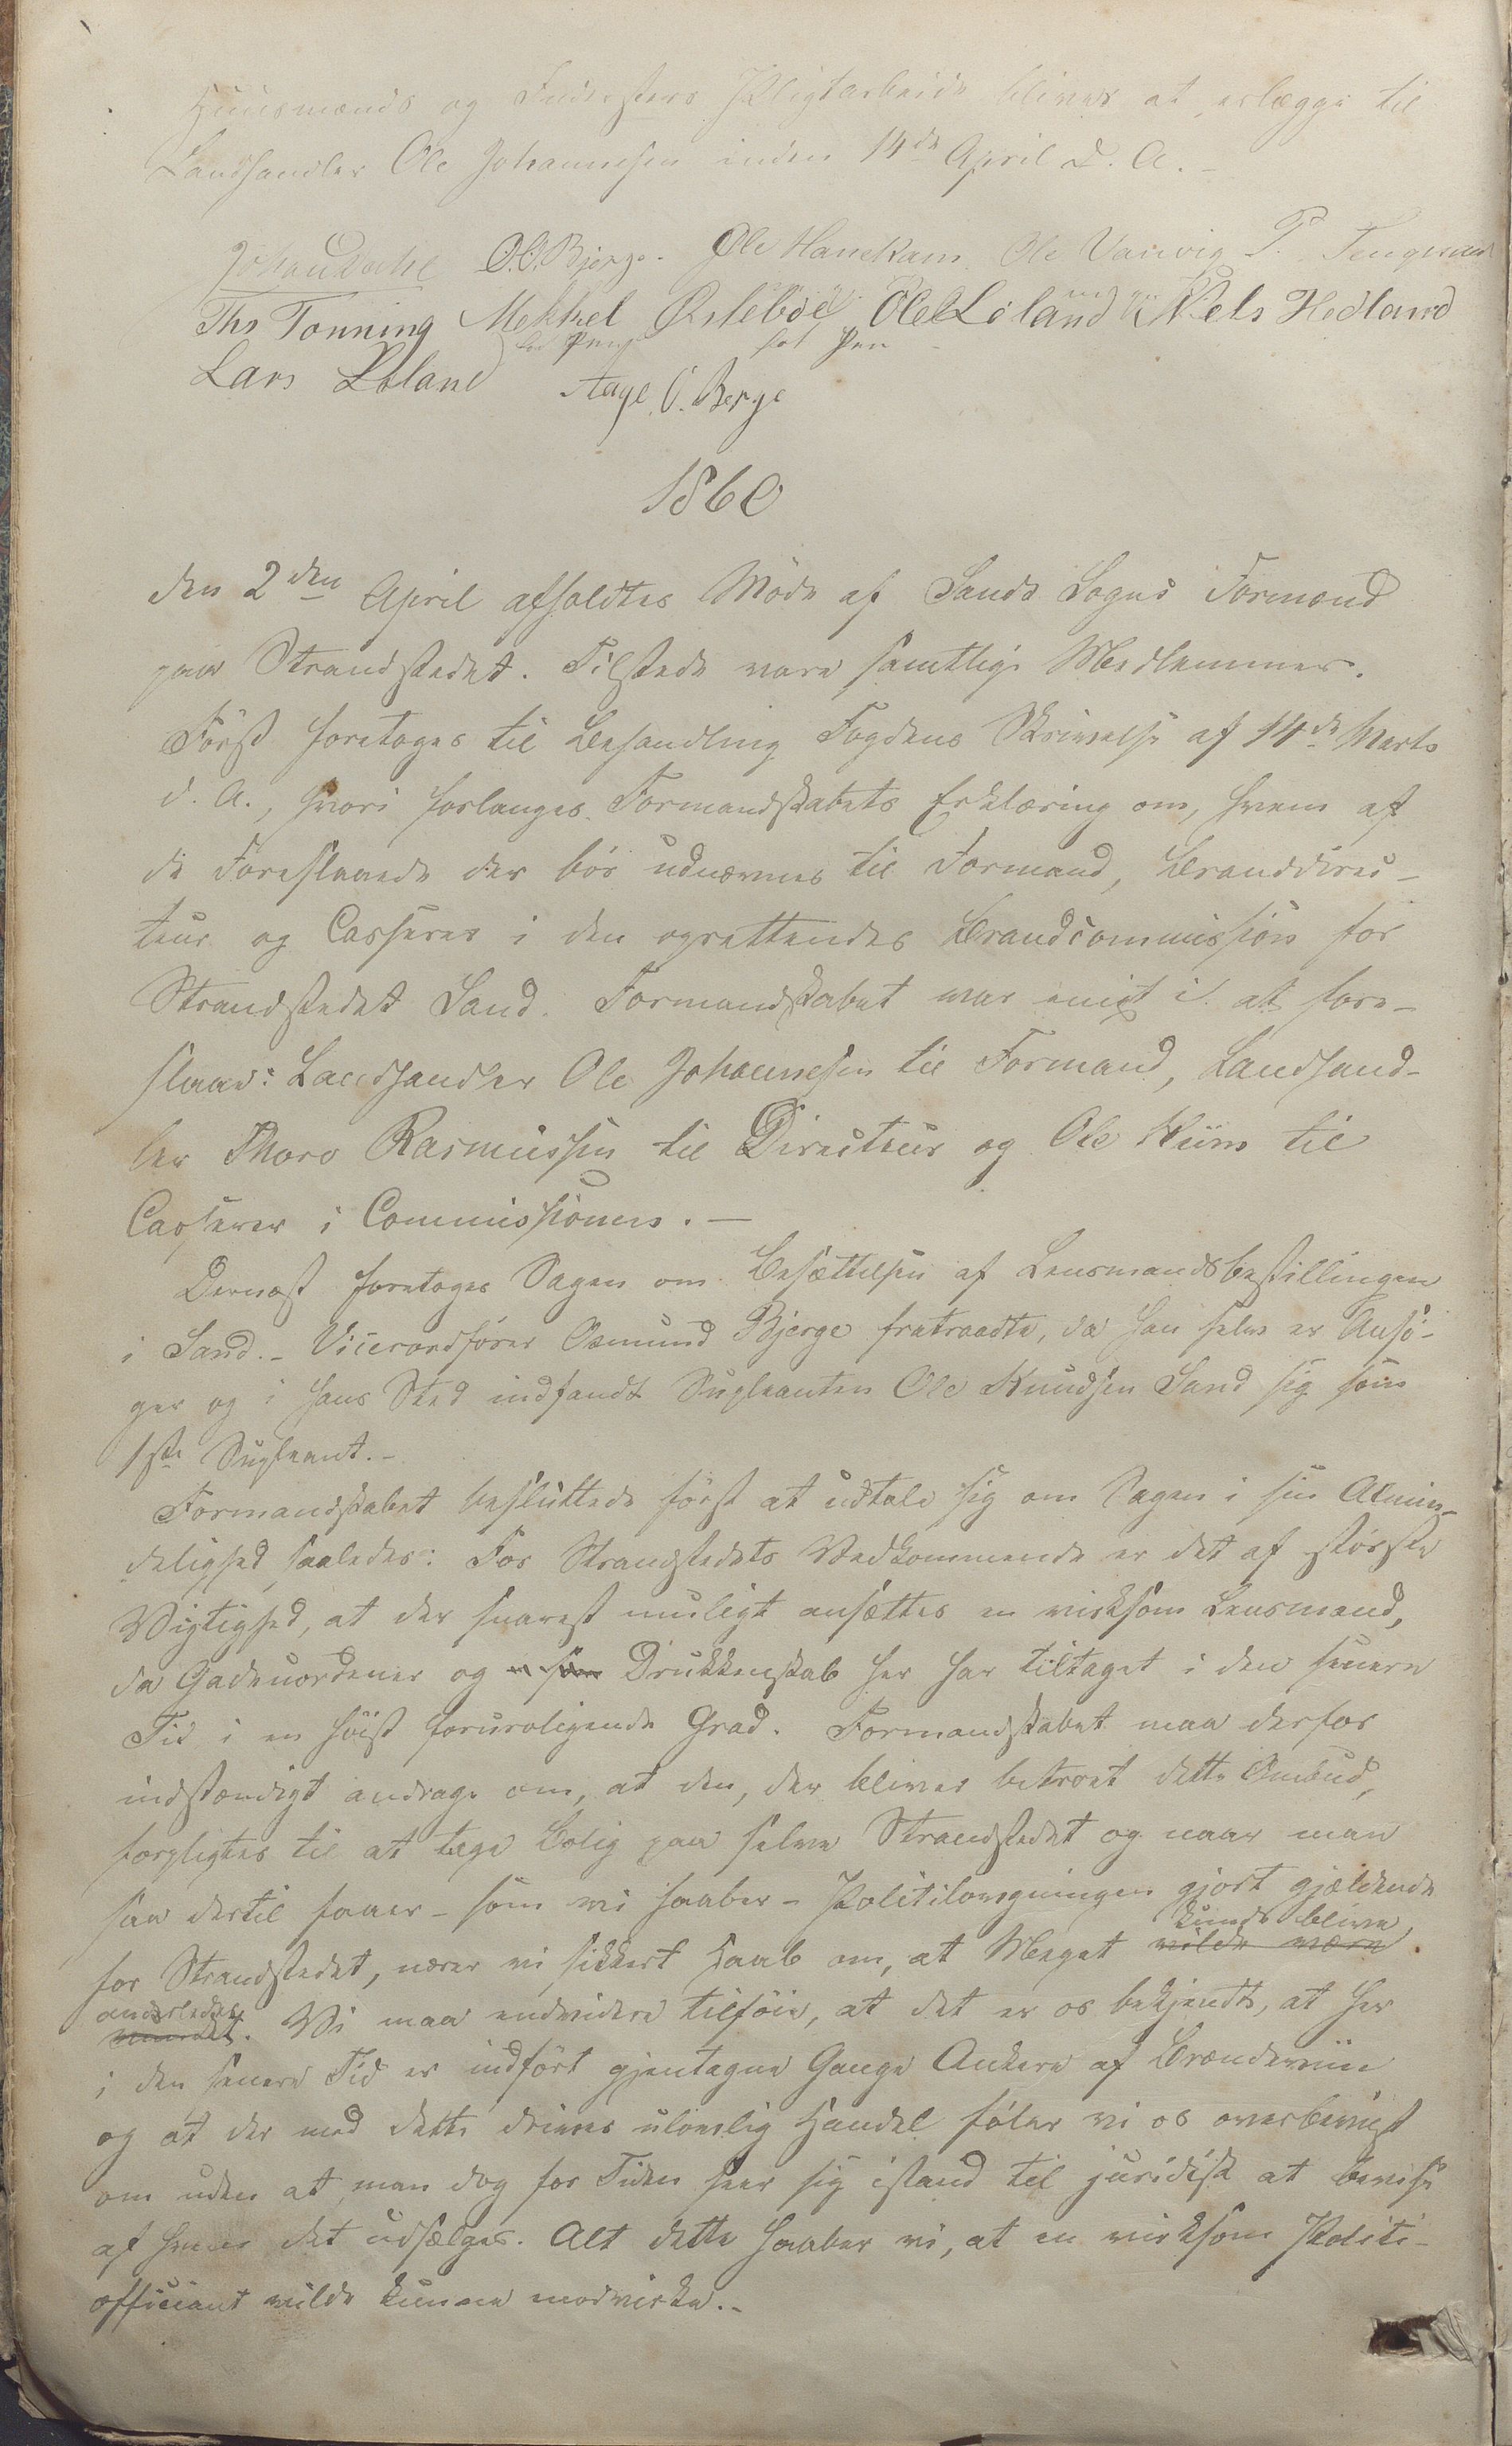 Huusmænds og Indersters Pligtarbeide bliver at erlægge til
Landhandler Ole Johannesen inden 14de April d. A. -
O. O. Bjerge. Ole Hanekam Ole Varvig
Ths Tonning Mekkel Østeböe Ole Löland Nels Hedland
Lars Löland Aage O. Berge
paa Pen fol Pen
1860
den 2den April afholdtes Möde af Sands Sogns Formænd
paa Strandstedet. Tilstede vare samtlige Medlemmer.
Först foretoges til Behandling Fogdens Skrivelse af 14de Marts
d. A., hvori forlanges Formandskabets Erklæring om, hvem af
de Foreslaaede der bör udnævnes til Formand, Branddirec-
teur og Casserer i den oprettendes Brandcommission for
Strandstedet Sand. Formandskabet var enigt i at fore-
slaae: Landhandler Ole Johannesen til Formand, Landhand-
ler Thoro Rasmussen til Directeur og Ole Kiim til
Casserer i Commissionen. -
Dernæst foretoges Sagen om Besættelsen af Lensmandsbestillingen
i Sand. - Viceordförer Osmund Bjerge fratraadte, da han selv er Ansö-
ger og i hans Sted indfandt Supleanten Ole Knudsen Sand sig som
1ste Supleant. -
Formandskabet besluttede först at udtale sig om Sagen i sin Almin-
delighed saaledes: For Strandstedets Vedkommende er det af störste
Vigtighed, at der snarest muligt ansættes en virksom Lensmand,
da Gadeuordener og Drukkenskab her har tiltaget i den senere
Tid i en höist foruroligende Grad. Formandskabet maa derfor
indstændigt andrage om, at den, der bliver betroet dette Ombud,
forpligtes til at tage Bolig paa selve Strandstedet og naar man
saa dertil faaer - som vi haaber - Politilovgivningen gjort gjældende
for Strandstedet, nærer vi sikkert Haab om, at Meget vilde være kunde blive
anderledes. Vi maa endvidere tilföie, at det er os bekjendt, at her
i den senere Tid er indfört gjentagne Gange Ankere af Brændeviin
og at der med dette drives ulovlig Handel föler vi os overbeviist
om uden at man dog for Tiden seer sig istand til juridisk at bevise
af hvem det udsælges. Alt dette haaber vi, at en virksom Politi-
officiant vilde kunne modvirke. -